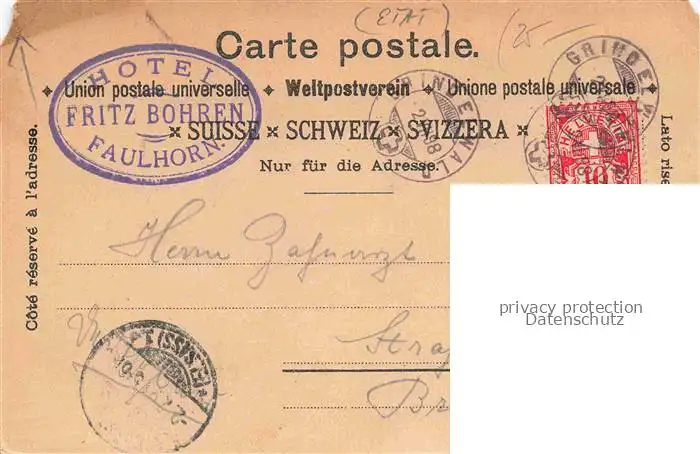 (ETAT)
25-
Carte postale.
HOTEL
FRITZ BOHREN
FAULHORN.
Union postale universelle ✦ Weltpostverein ✦ Unione postale universale
× SUISSE × SCHWEIZ × SVIZZERA ×
Nur für die Adresse.
Côté réservé à l'adresse.
Lato rise
GRINDELWALD
GRINDELW
HELVETIA
10
Herrn Zahnarzt
Stra
Br
(ELSASS)
privacy protection
Datenschutz